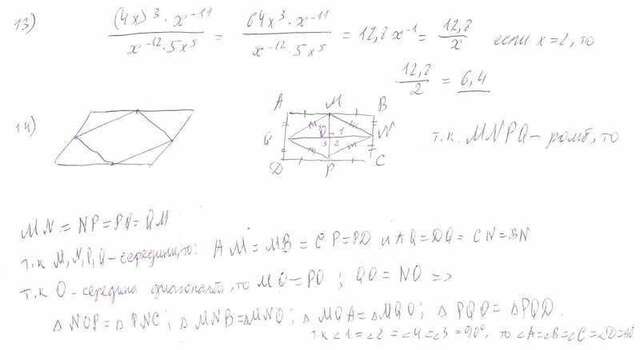 13) (4x)³ · x⁻¹¹ / x⁻¹² · 5x⁵ = 64x³ · x⁻¹¹ / x⁻¹² · 5x⁵ = 12,8 x⁻¹ = 12,8 / x если x=2, то
12,8 / 2 = 6,4
14) A M B
Q N т.к. MNPQ – ромб, то
D P C
MN = NP = PQ = QM
т.к M, N, P, Q – середины, то: AM = MB = CP = PD и AQ = DQ = CN = BN
т.к O – середина диагоналей, то MO = PO ; QO = NO =>
△ NOP = △ PNC ; △ MNB = △ MNO ; △ MQA = △ MQO ; △ PQO = △ PQD.
т.к ∠1 = ∠2 = ∠4 = ∠3 = 90°, то ∠A = ∠B = ∠C = ∠D = 90